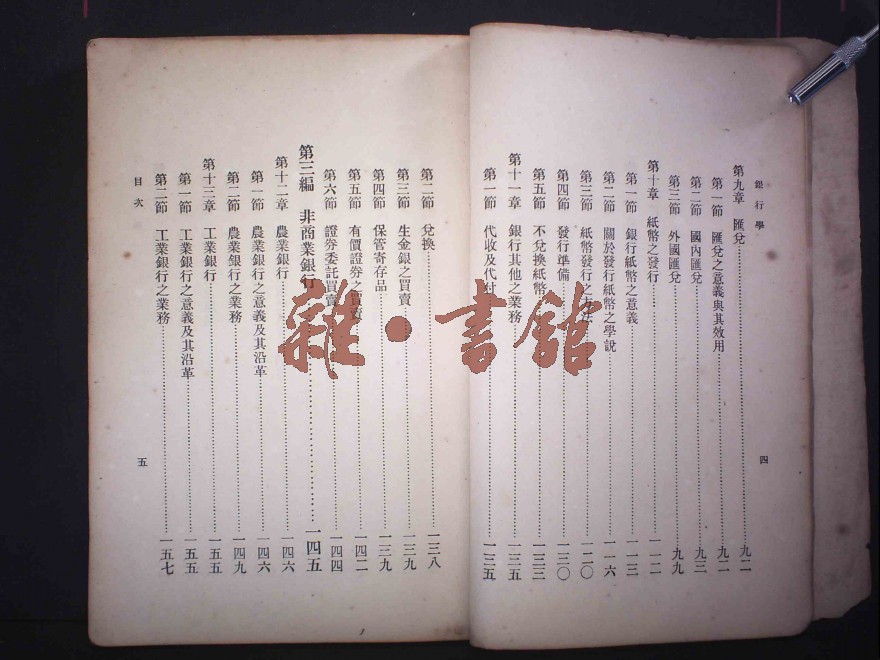 銀行學
第九章 匯兌 九二
第一節 匯兌之意義與其效用 九二
第二節 國內匯兌 九三
第三節 外國匯兌 九九
第十章 紙幣之發行 一一二
第一節 銀行紙幣之意義 一一三
第二節 關於發行紙幣之學說 一一六
第三節 紙幣發行之方法 一二〇
第四節 發行準備 一三〇
第五節 不兌換紙幣 一三三
第十一章 銀行其他之業務 一三五
第一節 代收及代付 一三五
四
第二節 兌換 一三八
第三節 生金銀之買賣 一三九
第四節 保管寄存品 一三九
第五節 有價證券之買賣 一四二
第六節 證券委託買賣 一四四
第三編 非商業銀行 一四五
第十二章 農業銀行 一四六
第一節 農業銀行之意義及其沿革 一四六
第二節 農業銀行之業務 一四九
第十三章 工業銀行 一五五
第一節 工業銀行之意義及其沿革 一五五
第二節 工業銀行之業務 一五七
目次
五
雜·書館